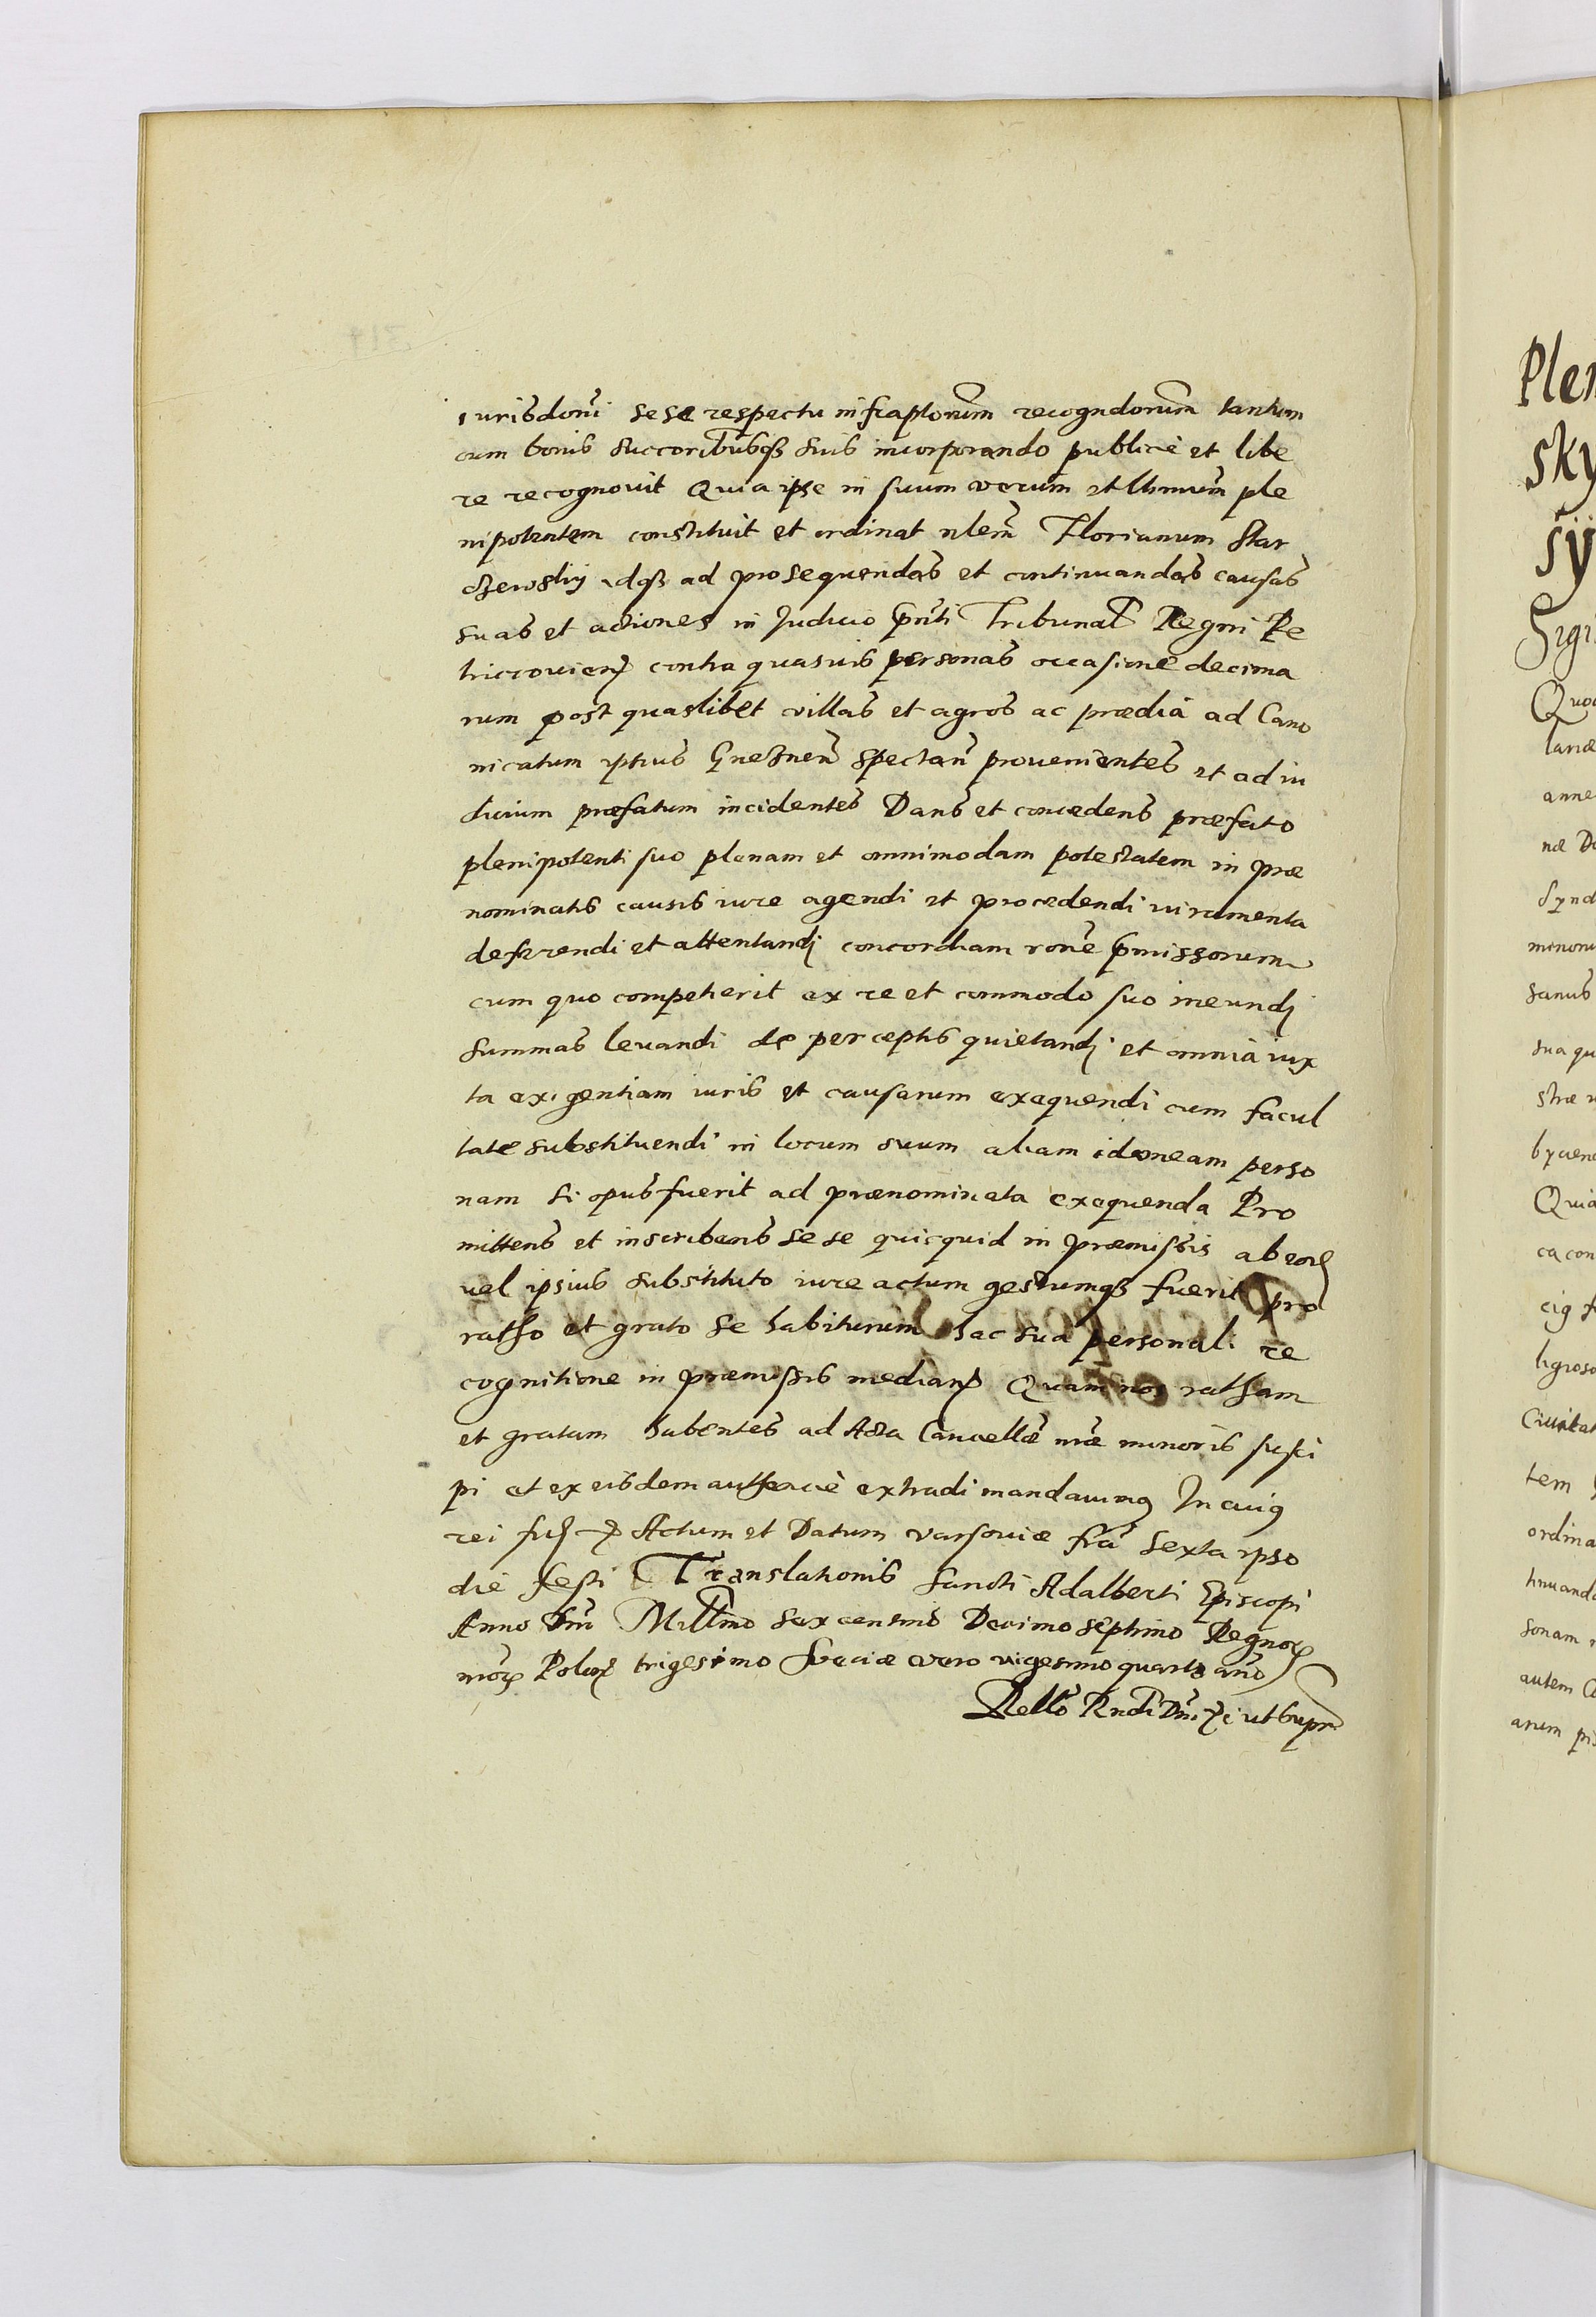 iurisdoni sese respectu infraptorum recogndorum tantum
cum bonis succoribusq suis incorporando publice et libe
re recognouit Quia ipse in suum verum et lttimum ple
nipotentem constituit et ordinat nlem Florianum Star
czewskij idq ad prosequendas et continuandas causas
suas et actiones in Judicio pnti Tribunal Regni Pe
tricouien contra quasuis personas occasione decima
rum post quaslibet villas et agros ac prædia ad Cano
nicatum ipsius Gnesnen spectan prouenientes et ad iu
dicium præfatum incidentes Dans et concedens præfato
plenipotenti suo plenam et omnimodam potestatem in præ
nominatis causis iure agendi et procedendi iuramenta
deferendi et attentandi concordiam rone pmissorum
cum quo competierit ex re et commodo suo ineundi
summas leuandi de perceptis quietandi et omnia iux
ta exigentiam iuris et causarum exequendi cum facul
tate substituendi in locum suum aliam idoneam perso
nam si opus fuerit ad prænominata exequenda Pro
mittens et inscribens sese quicquid in præmissis ab eod
vel ipsius substituto iure actum gestumq fuerit pro
ratho et grato se habiturum hac sua personali re
cognitione in præmissis median Quam nos ratham
et gratam habentes ad Acta Cancellæ nræ minoris susci
pi et ex eisdem authenticè extradi mandauimus In cuius
rei fid Actum et Datum varsouiæ fra sexta ipso
die festi Translationis Sancti Adalberti Episcopi
Anno Dni Millmo sexcentmo Decimo septimo Regnor
nror Polon trigesimo Sveciæ vero vigesimo quarto anno
Rello Rndi Dni ut supra
Plen
sky
sij
Sigi
Quo
lariæ
anne
næ D
Synd
minoru
sanus
sua qu
stræ
Quia
ca con
ligioso
Ciuitat
tem
ordina
tinuand
sonam
autem
arum